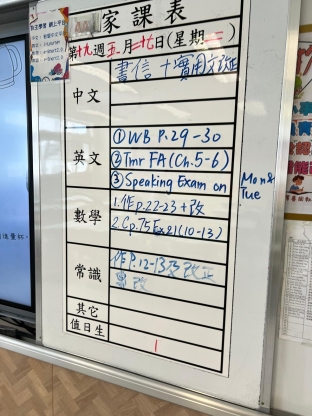 家課表
第十九週五月二十七日(星期二)
中文
書信+實用文改正
英文
① WB P.29-30
② Tmr FA (Ch.5-6)
③ Speaking Exam on Mon & Tue
數學
1.作P.22-23+改
2.Cp.75 Ex21(10-13)
常識
作P.12-13及改正
改
其它
值日生
1